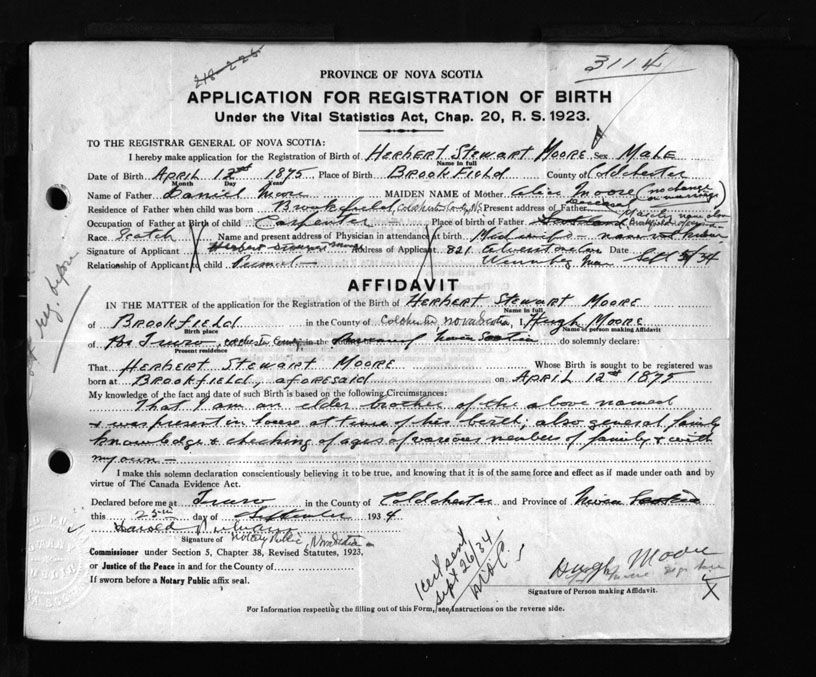 218-226
3114
PROVINCE OF NOVA SCOTIA
APPLICATION FOR REGISTRATION OF BIRTH
Under the Vital Statistics Act, Chap. 20, R. S. 1923.
TO THE REGISTRAR GENERAL OF NOVA SCOTIA:
I hereby make application for the Registration of Birth of Herbert Stewart Moore Sex Male
Name in full
Date of Birth April 12th 1875 Place of Birth Brookfield County of Coldchester
Month Day Year
Name of Father Daniel Moore MAIDEN NAME of Mother Moore (no change on marriage)
Residence of Father when child was born Brookfield, Colchester Co. N.S. Present address of Father Deceased
Occupation of Father at Birth of child Carpenter Place of birth of Father
Race Scotch Name and present address of Physician in attendance at birth Midwife
Signature of Applicant Herbert Stewart Moore Address of Applicant 821 Date Sept 5/34
Relationship of Applicant to child Winnipeg Man
AFFIDAVIT
IN THE MATTER of the application for the Registration of the Birth of Herbert Stewart Moore
Name in full
of Brookfield in the County of Colchester Nova Scotia, I, Hugh Moore
Birth place Name of person making Affidavit
of Truro, Colchester County in the Nova Scotia do solemnly declare:
Present residence
That Herbert Stewart Moore Whose Birth is sought to be registered was
born at Brookfield, aforesaid on April 12th 1875
My knowledge of the fact and date of such Birth is based on the following Circumstances:
That I am an elder brother of the above named
& was present in house at time of his birth; also general family
knowledge & checking of ages of various members of family & with
my own —
I make this solemn declaration conscientiously believing it to be true, and knowing that it is of the same force and effect as if made under oath and by
virtue of The Canada Evidence Act.
Declared before me at Truro in the County of Coldchester and Province of Nova Scotia
this 25th day of September 1934
Harold
Signature of Notary Public, Nova Scotia
Commissioner under Section 5, Chapter 38, Revised Statutes, 1923,
or Justice of the Peace in and for the County of
If sworn before a Notary Public affix seal.
1 cert sent
Sept 26/34
Hugh Moore
Signature of Person making Affidavit.
X
For Information respecting the filling out of this Form, see Instructions on the reverse side.